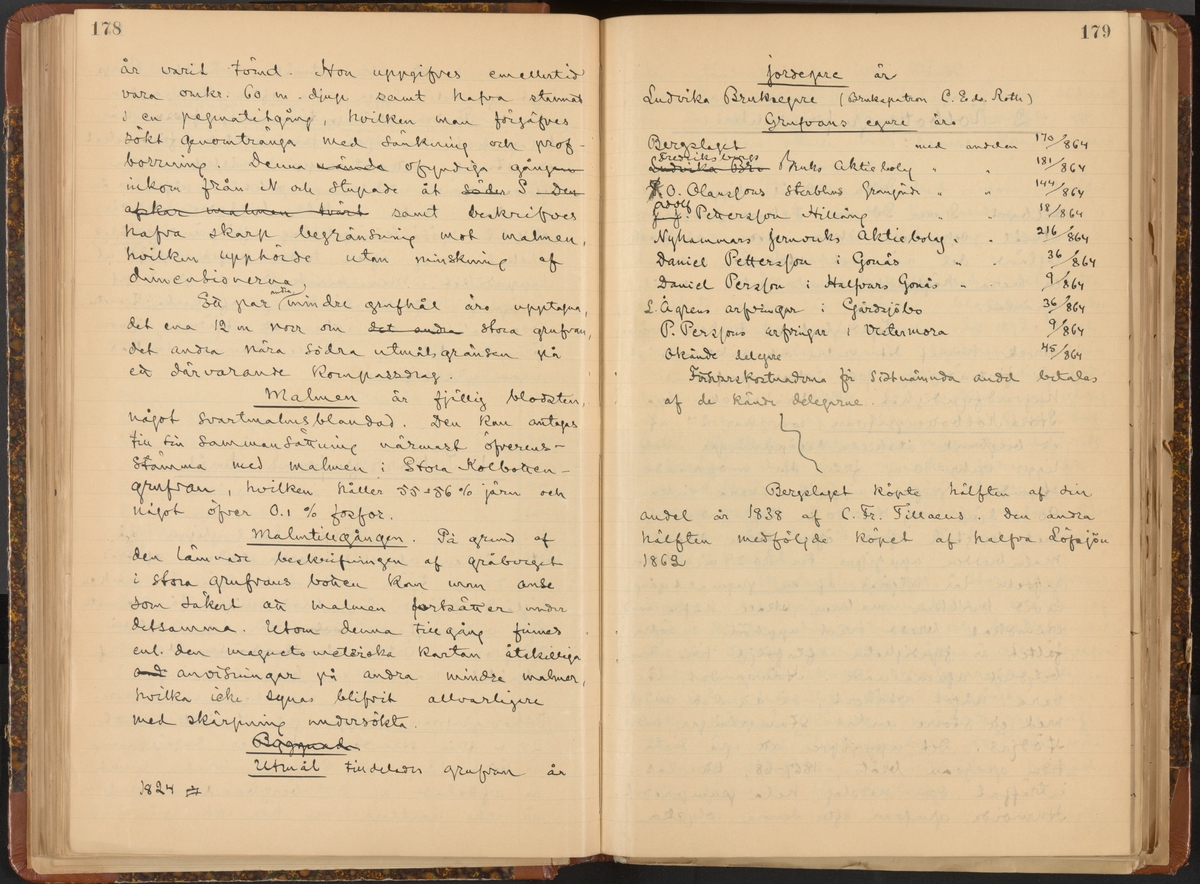 178
år varit tömd. Hon uppgifves emellertid
vara omkr. 60 m. djup samt hafva stannat
i en pegmatitgång, hvilken man förgäfves
sökt genomtränga med sänkning och prof-
borrning. Denna nämda ofyndiga gången
inkom från N och stupade åt söder S Den
afskar malmen tvärt samt beskrifves
hafva skarp begränsning mot malmen,
hvilken upphörde utan minskning af
dimensionerna.
Ett par andra mindre grufhål äro upptagna,
det ena 12 m norr om det andra stora grufvan,
det andra nära södra utmålsgränsen på
ett därvarande kompassdrag.
Malmen är fjällig blodsten,
något svartmalmsblandad. Den kan antages
till sin sammansättning närmast öfverens-
stämma med malmen i Stora Kolbotten-
grufvan, hvilken håller 55 à 56 % järn och
något öfver 0.1 % fosfor.
Malmtillgången. På grund af
den lämnade beskrifningen af gråberget
i stora grufvans botten kan man anse
som säkert att malmen fortsätter under
detsamma. Utom denna tillgång finnes
enl. den magnetometriska kartan åtskilliga
and anvisningar på andra mindre malmer,
hvilka icke synas blifvit allvarligare
med skärpning undersökta.
Byggnad
Utmål tilldelades grufvan år
1824
179
Jordegare är
Ludvika Bruksegare (Brukspatron C. Edv. Roth)
Grufvans egare äro
Bergslaget med andelen 170/864
Fredriksbergs
Ludvika Bru Bruks Aktiebolag " " 181/864
O. Olanssons Sterbhus Grangärde " " 144/864
Adolf
Pettersson Hilläng " " 18/864
Nyhammars Jernverks Aktiebolag " " 216/864
Daniel Pettersson i Gonäs " " 36/864
Daniel Persson i Halfvars Gonäs " 9/864
L. Ågrens arfvingar i Gårdsjöbo 36/864
P. Perssons arfvingar i Vestermora 9/864
Okände delegare 45/864
Försvarskostnaderna för sistnämnda andel betalas
af de kände delegarne.
Bergslaget köpte hälften af sin
andel år 1838 af C. Fr. Tillaeus. Den andra
hälften medföljde köpet af halfva Löfsjön
1862